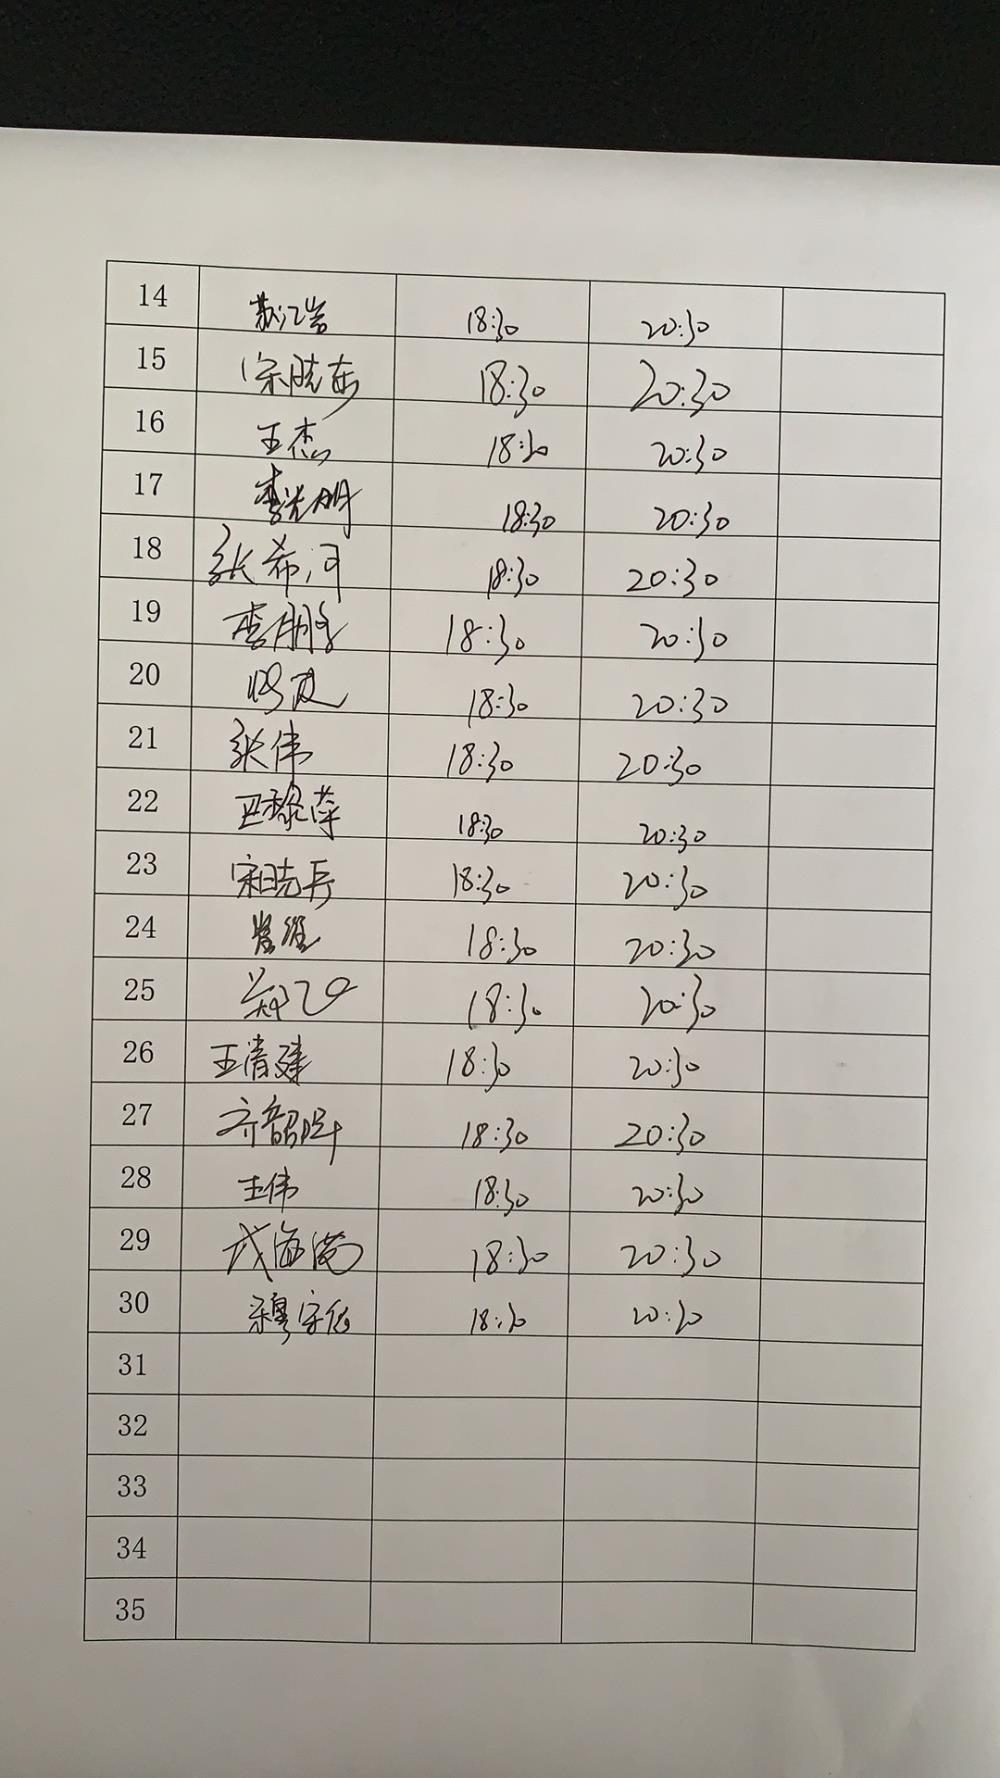 14 18:30 20:30
15 宋晓东 18:30 20:30
16 王杰 18:30 20:30
17 李光明 18:30 20:30
18 张希河 18:30 20:30
19 李鹏 18:30 20:30
20 18:30 20:30
21 张伟 18:30 20:30
22 18:30 20:30
23 宋晓兵 18:30 20:30
24 18:30 20:30
25 18:30 20:30
26 王清建 18:30 20:30
27 齐韶晖 18:30 20:30
28 王伟 18:30 20:30
29 海 18:30 20:30
30 18:30 20:30
31
32
33
34
35